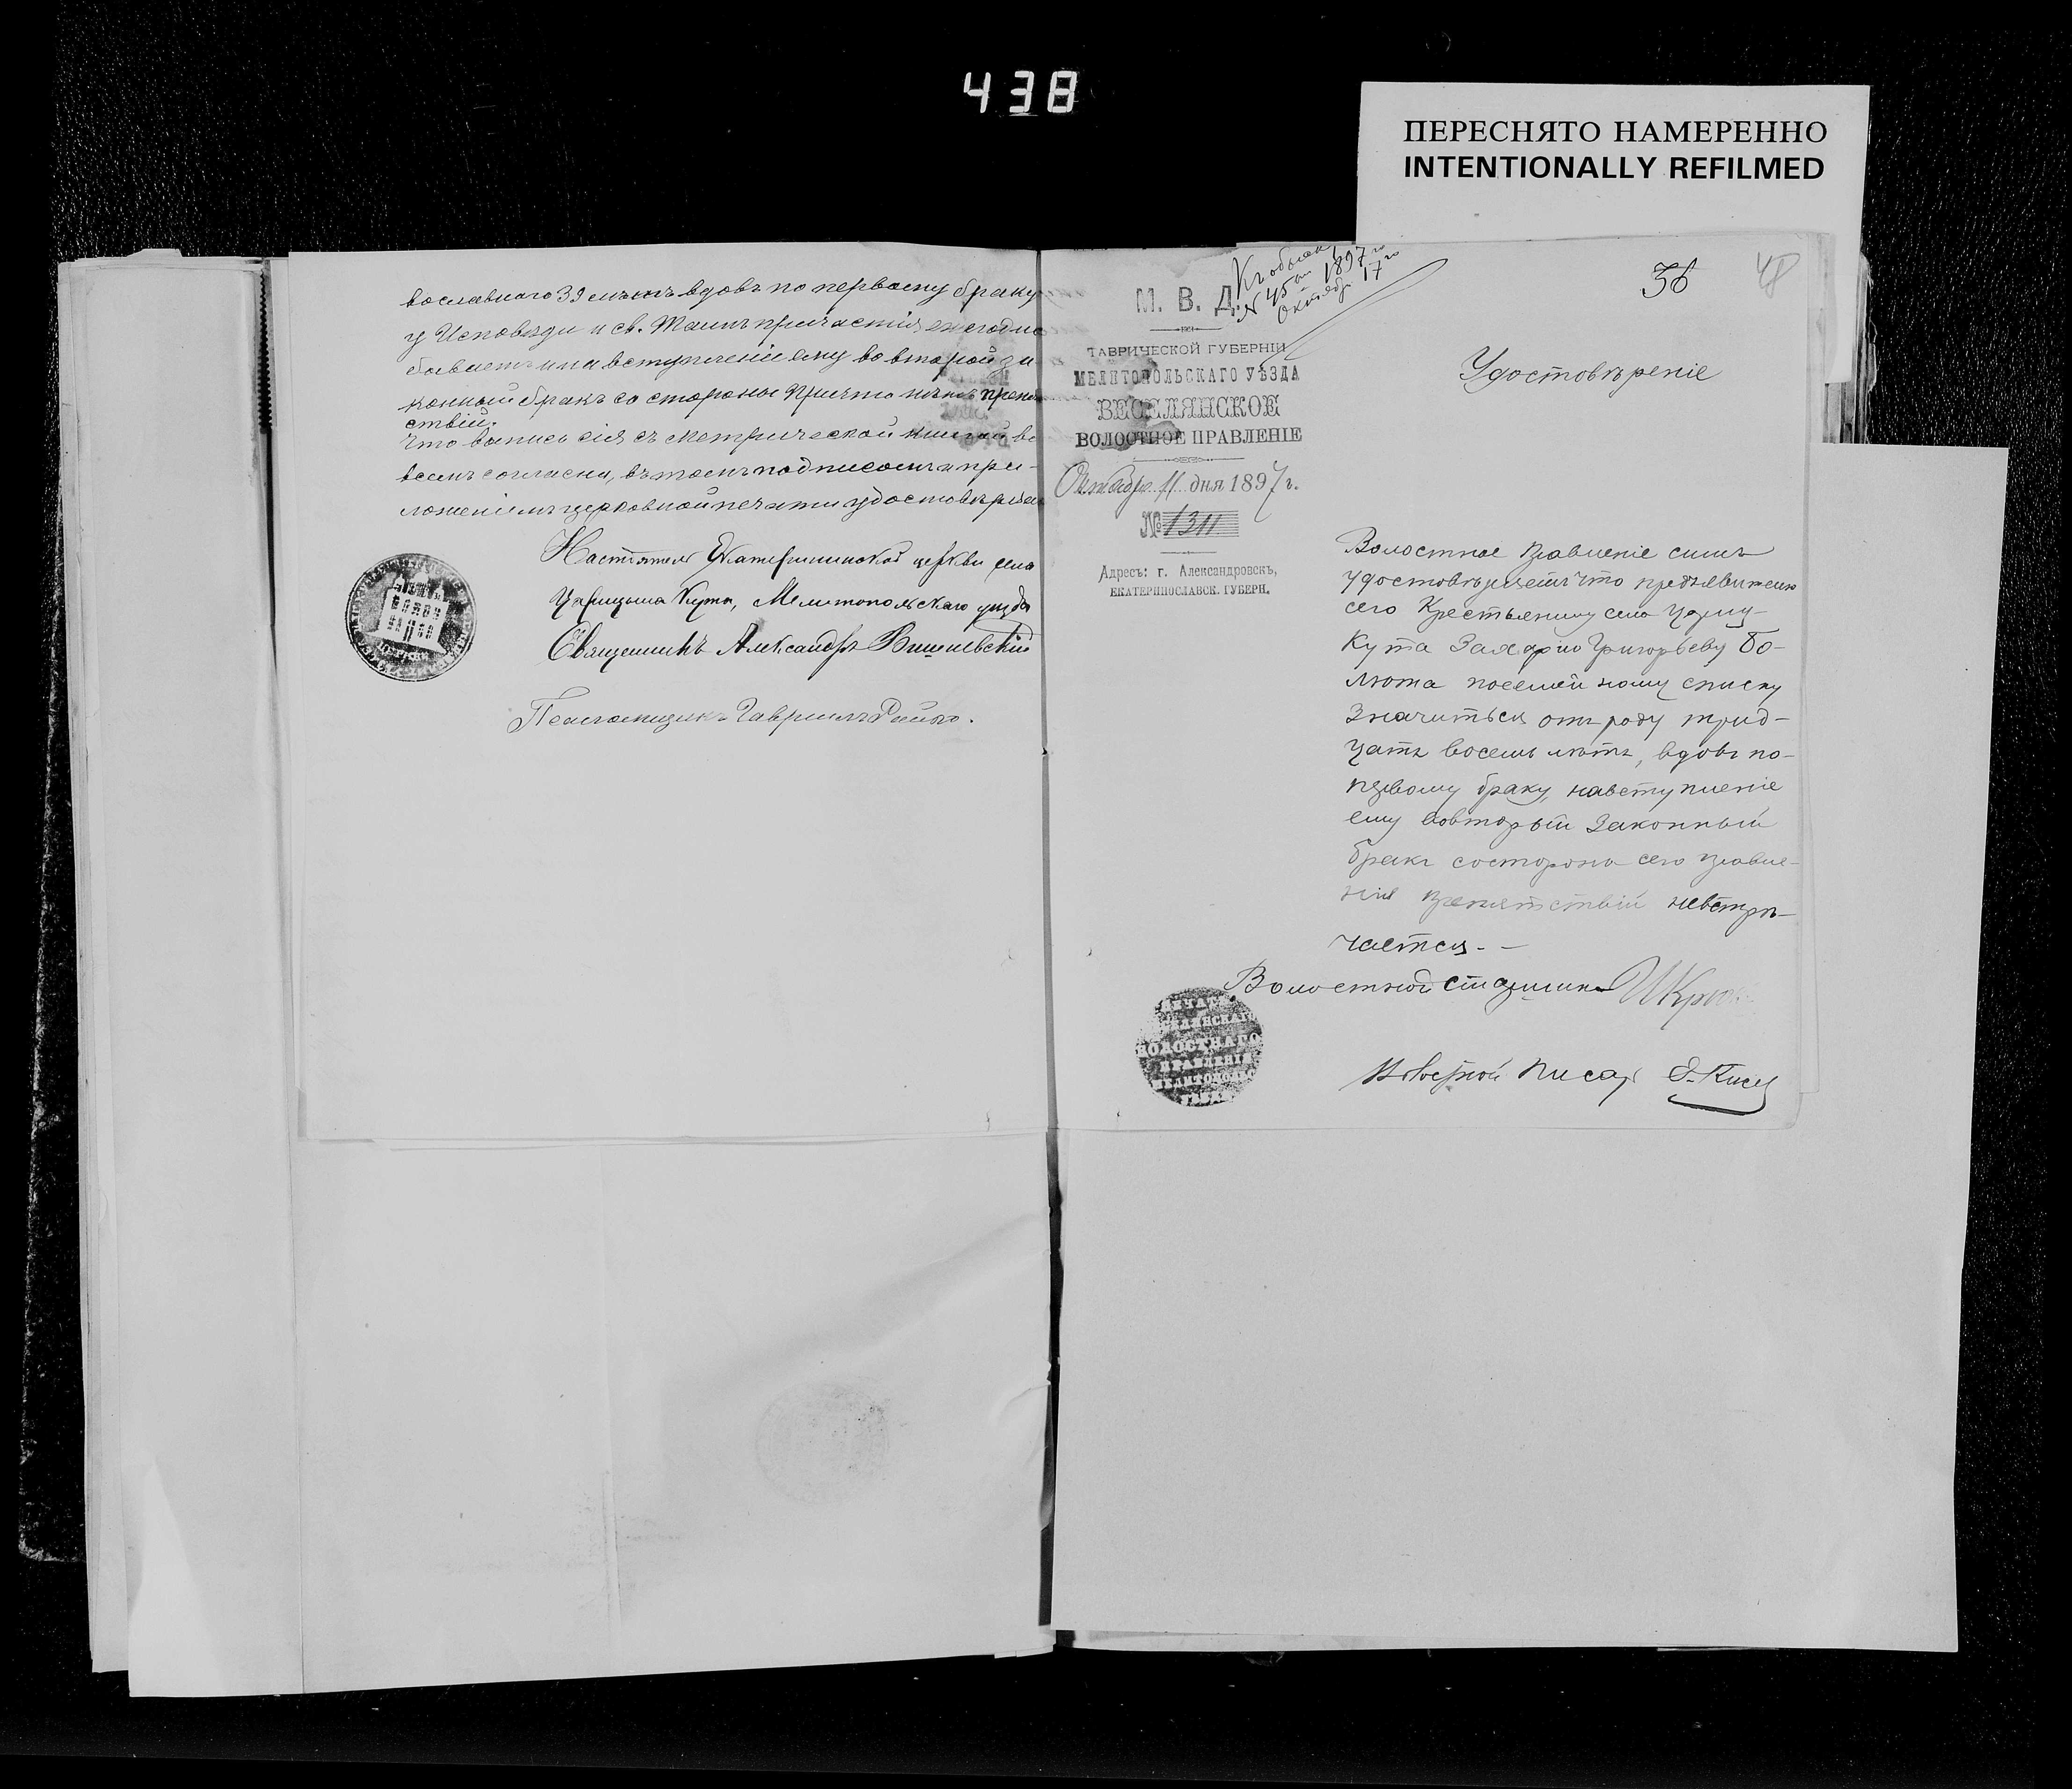 438
ПЕРЕСНЯТО НАМЕРЕННО
INTENTIONALLY REFILMED
вославнаго 39 лѣтъ вдовъ по первому браку
у Исповѣди и св. Таинъ причастія ежегодно
бываетъ и на вступленіе ему во второй за
конный бракъ со стороны Причта нѣтъ препят
ствій.
Что выпись сія съ метрической книгой во
всемъ согласна, въ томъ подписомъ и при-
ложеніемъ церковной печати удостовѣряемъ
Настоятель Екатерининской церкви села
Царицына Кута, Мелитопольскаго уѣзда
Священникъ Александръ Вишневскій
Псаломщикъ Гавриилъ
Къ обыску
№ 45 1897 го
Октябр. 17 го
36
48
М. В. Д.
ТАВРИЧЕСКОЙ ГУБЕРНІИ
МЕЛИТОПОЛЬСКАГО УѢЗДА
ВЕСЕЛЯНСКОЕ
ВОЛОСТНОЕ ПРАВЛЕНІЕ
Октября 11 дня 1897 г.
№ 1311
Адресъ: г. Александровскъ,
ЕКАТЕРИНОСЛАВСК. ГУБЕРН.
Удостовѣреніе
Волостное Правленіе симъ
удостовѣряетъ что предъявителю
сего Крестьянину села Цариц-
Кута Захарію Григорьеву Бо-
люта посемейному списку
значиться отъ роду трид-
цать восемь лѣтъ, вдовъ по-
первому браку, навступленіе
ему вовторый Законный
бракъ состороны сего правле-
нія препятствій невстрѣ-
чается. —
Волостной старшина
Писарь
ПЕЧАТЬ
ВЕСЕЛЯНСКАГО
ВОЛОСТНАГО
ПРАВЛЕНІЯ
МЕЛИТОПОЛЬС
УѢЗДА